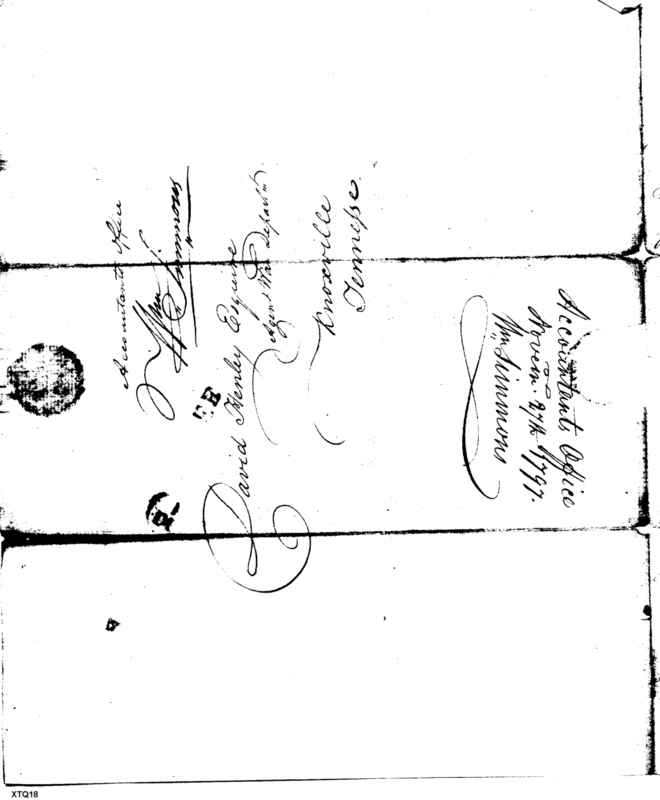 Accountants Office
Wm Simmons
David Henley Esquire
Agent War Departm
Knoxville
Tennessee
Accountants Office
Novem. 27th 1797.
Wm Simmons
XTQ18